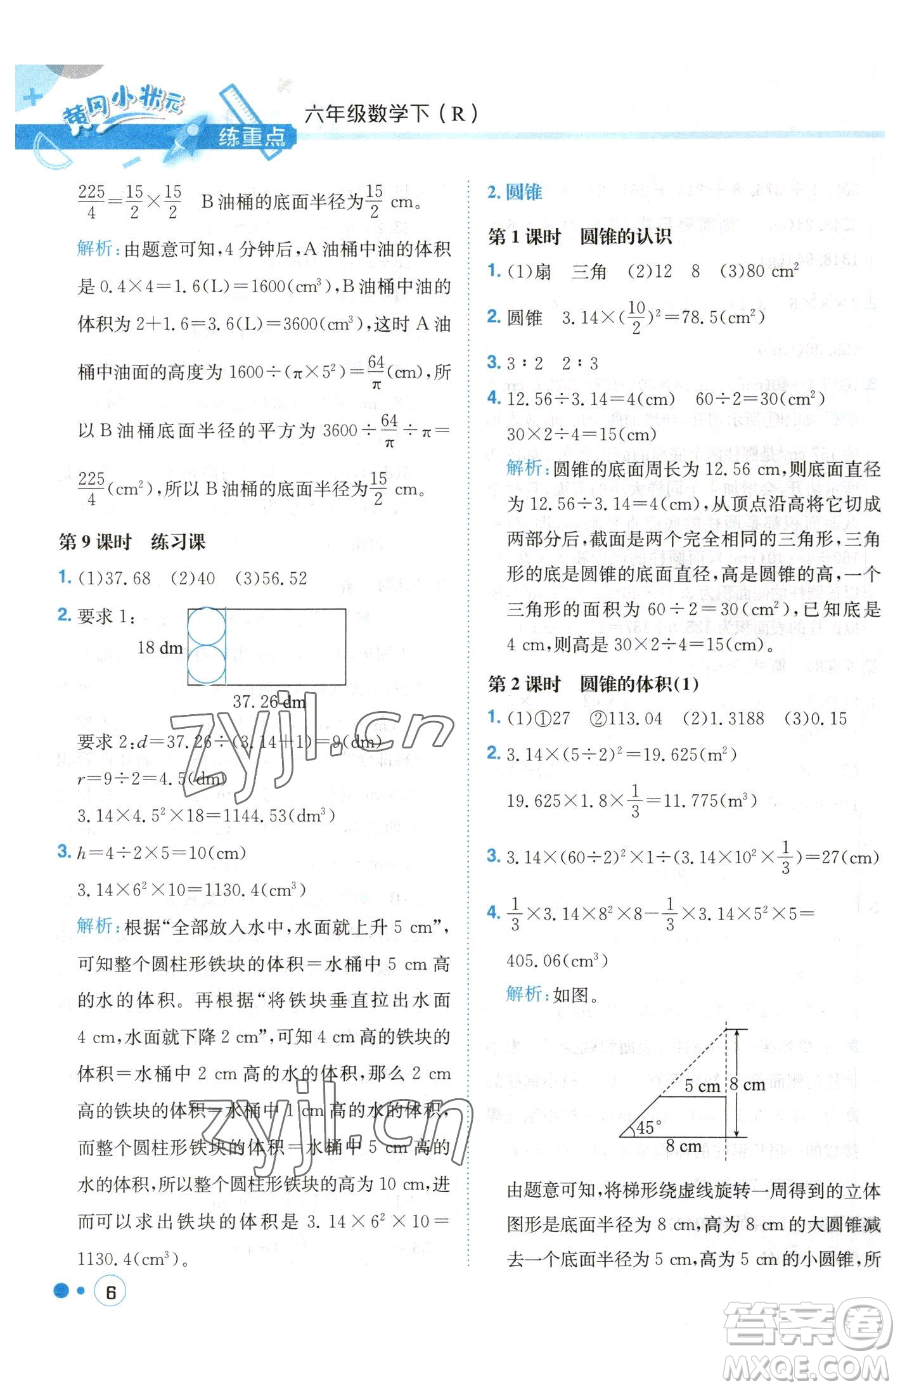 黄冈小状元
练重点
六年级数学下（R）
225/4=15/2×15/2　B油桶的底面半径为15/2 cm。
解析:由题意可知,4分钟后,A油桶中油的体积
是0.4×4=1.6(L)=1600(cm³),B油桶中油的
体积为2+1.6=3.6(L)=3600(cm³),这时A油
桶中油面的高度为1600÷(π×5²)=64/π(cm),所
以B油桶底面半径的平方为3600÷64/π÷π=
225/4(cm²),所以B油桶的底面半径为15/2 cm。
第9课时　练习课
1. (1)37.68　(2)40　(3)56.52
2. 要求1:
18 dm
37.26 dm
要求2:d=37.26÷(3.14+1)=9(dm)
r=9÷2=4.5(dm)
3.14×4.5²×18=1144.53(dm³)
3. h=4÷2×5=10(cm)
3.14×6²×10=1130.4(cm³)
解析:根据“全部放入水中,水面就上升5 cm”,
可知整个圆柱形铁块的体积=水桶中5 cm高
的水的体积。再根据“将铁块垂直拉出水面
4 cm,水面就下降2 cm”,可知4 cm高的铁块的
体积=水桶中2 cm高的水的体积,那么2 cm
高的铁块的体积=水桶中1 cm高的水的体积,
而整个圆柱形铁块的体积=水桶中5 cm高的
水的体积,所以整个圆柱形铁块的高为10 cm,进
而可以求出铁块的体积是3.14×6²×10=
1130.4(cm³)。
6
2. 圆锥
第1课时　圆锥的认识
1. (1)扇　三角　(2)12　8　(3)80 cm²
2. 圆锥　3.14×(10/2)²=78.5(cm²)
3. 3∶2　2∶3
4. 12.56÷3.14=4(cm)　60÷2=30(cm²)
30×2÷4=15(cm)
解析:圆锥的底面周长为12.56 cm,则底面直径
为12.56÷3.14=4(cm),从顶点沿高将它切成
两部分后,截面是两个完全相同的三角形,三角
形的底是圆锥的底面直径,高是圆锥的高,一个
三角形的面积为60÷2=30(cm²),已知底为
4 cm,则高是30×2÷4=15(cm)。
第2课时　圆锥的体积(1)
1. (1)①27　②113.04　(2)1.3188　(3)0.15
2. 3.14×(5÷2)²=19.625(m²)
19.625×1.8×1/3=11.775(m³)
3. 3.14×(60÷2)²×1÷(3.14×10²×1/3)=27(cm)
4. 1/3×3.14×8²×8−1/3×3.14×5²×5=
405.06(cm³)
解析:如图。
5 cm
8 cm
45°
8 cm
由题意可知,将梯形绕虚线旋转一周得到的立体
图形是底面半径为8 cm,高为8 cm的大圆锥减
去一个底面半径为5 cm,高为5 cm的小圆锥,所
zyjl.cn
zyjl.cn
答案圈
MXQE.COM